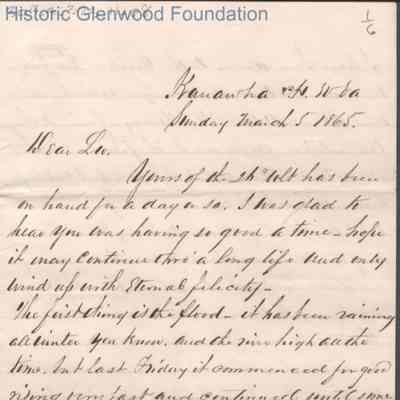 Historic Glenwood Foundation
1/6
Kanawha C.H. W. Va
Sunday March 5 1865.
Dear Lu.
Yours of the 26th Ult has been
on hand for a day or so. I was glad to
hear you was having so good a time - hope
it may continue thro' a long life and only
wind up with Eternal felicity -
The first thing is the flood - it has been raining
all winter you know. and the river high all the
time. but last Friday it commenced for good
rising very fast and continued until some